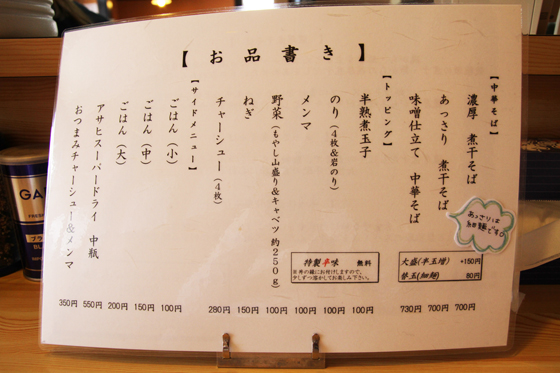 【お品書き】
【中華そば】
濃厚 煮干そば 700円
あっさり 煮干そば 700円
味噌仕立て 中華そば 730円
あっさりは
細麺です。
大盛(半玉増) +150円
替玉(細麺) 80円
【トッピング】
半熟煮玉子 100円
のり(4枚&岩のり) 100円
メンマ 100円
野菜(もやし山盛り&キャベツ 約250g) 100円
ねぎ 150円
チャーシュー(4枚) 280円
特製辛味 無料
【サイドメニュー】
ごはん(小) 100円
ごはん(中) 150円
ごはん(大) 200円
アサヒスーパードライ 中瓶 550円
おつまみチャーシュー&メンマ 350円